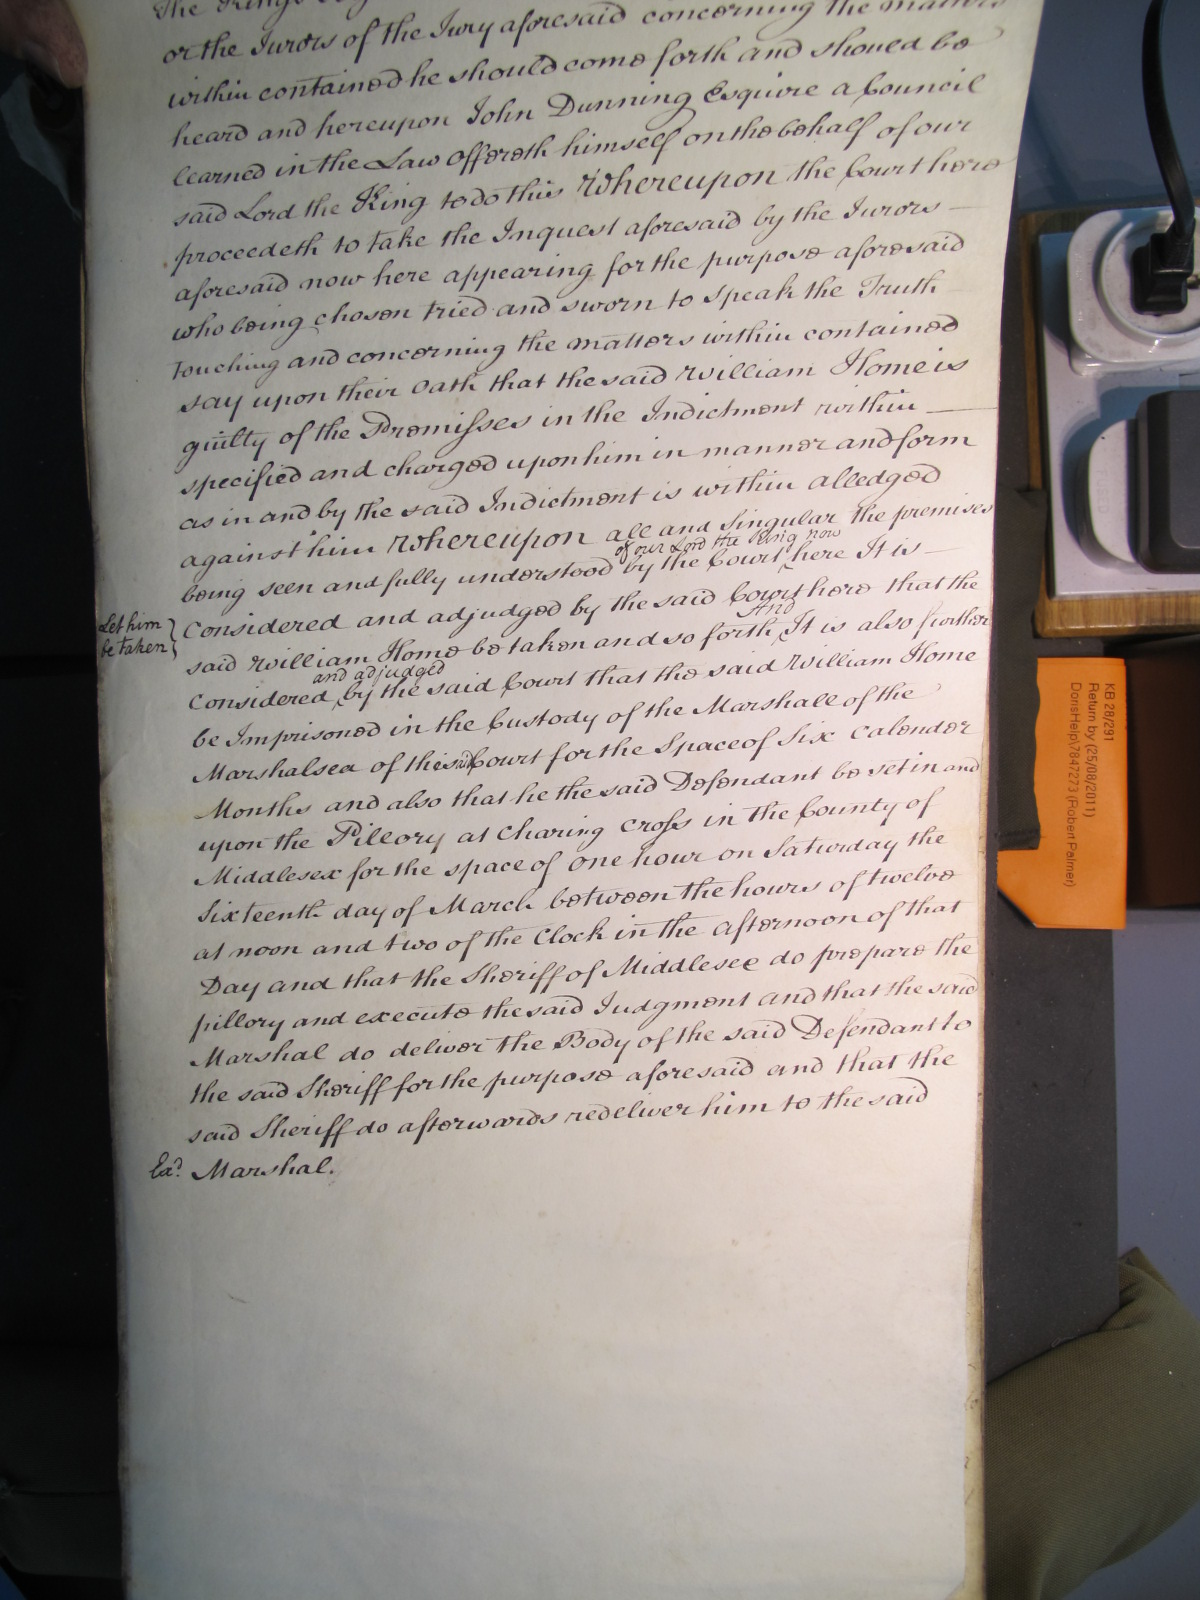 The Kings
or the Jurors of the Jury aforesaid concerning the matters
within contained he should come forth and should be
heard and hereupon John Dunning Esquire a Council
learned in the Law offereth himself on the behalf of our
said Lord the King to do this Whereupon the Court here
proceedeth to take the Inquest aforesaid by the Jurors —
aforesaid now here appearing for the purpose aforesaid
who being chosen tried and sworn to speak the Truth
touching and concerning the matters within contained
say upon their Oath that the said William Home is
guilty of the Premisses in the Indictment within —
specified and charged upon him in manner and form
as in and by the said Indictment is within alledged
against him Whereupon all and Singular the premises
of our Lord the King now
being seen and fully understood by the Court here It is —
Let him
be taken
Considered and adjudged by the said Court here that the
And
said William Home be taken and so forth It is also further
and adjudged
Considered by the said Court that the said William Home
be Imprisoned in the Custody of the Marshall of the
Marshalsea of the said Court for the Space of Six Calender
Months and also that he the said Defendant be set in and
upon the Pillory at Charing Cross in the County of
Middlesex for the space of one hour on Saturday the
Sixteenth day of March between the hours of twelve
at noon and two of the Clock in the afternoon of that
Day and that the Sheriff of Middlesex do prepare the
pillory and execute the said Judgment and that the said
Marshal do deliver the Body of the said Defendant to
the said Sheriff for the purpose aforesaid and that the
said Sheriff do afterwards redeliver him to the said
Exd. Marshal.
KB 28/291
Return by (25/08/2011)
DorisHelp\7847273 (Robert Palmer)